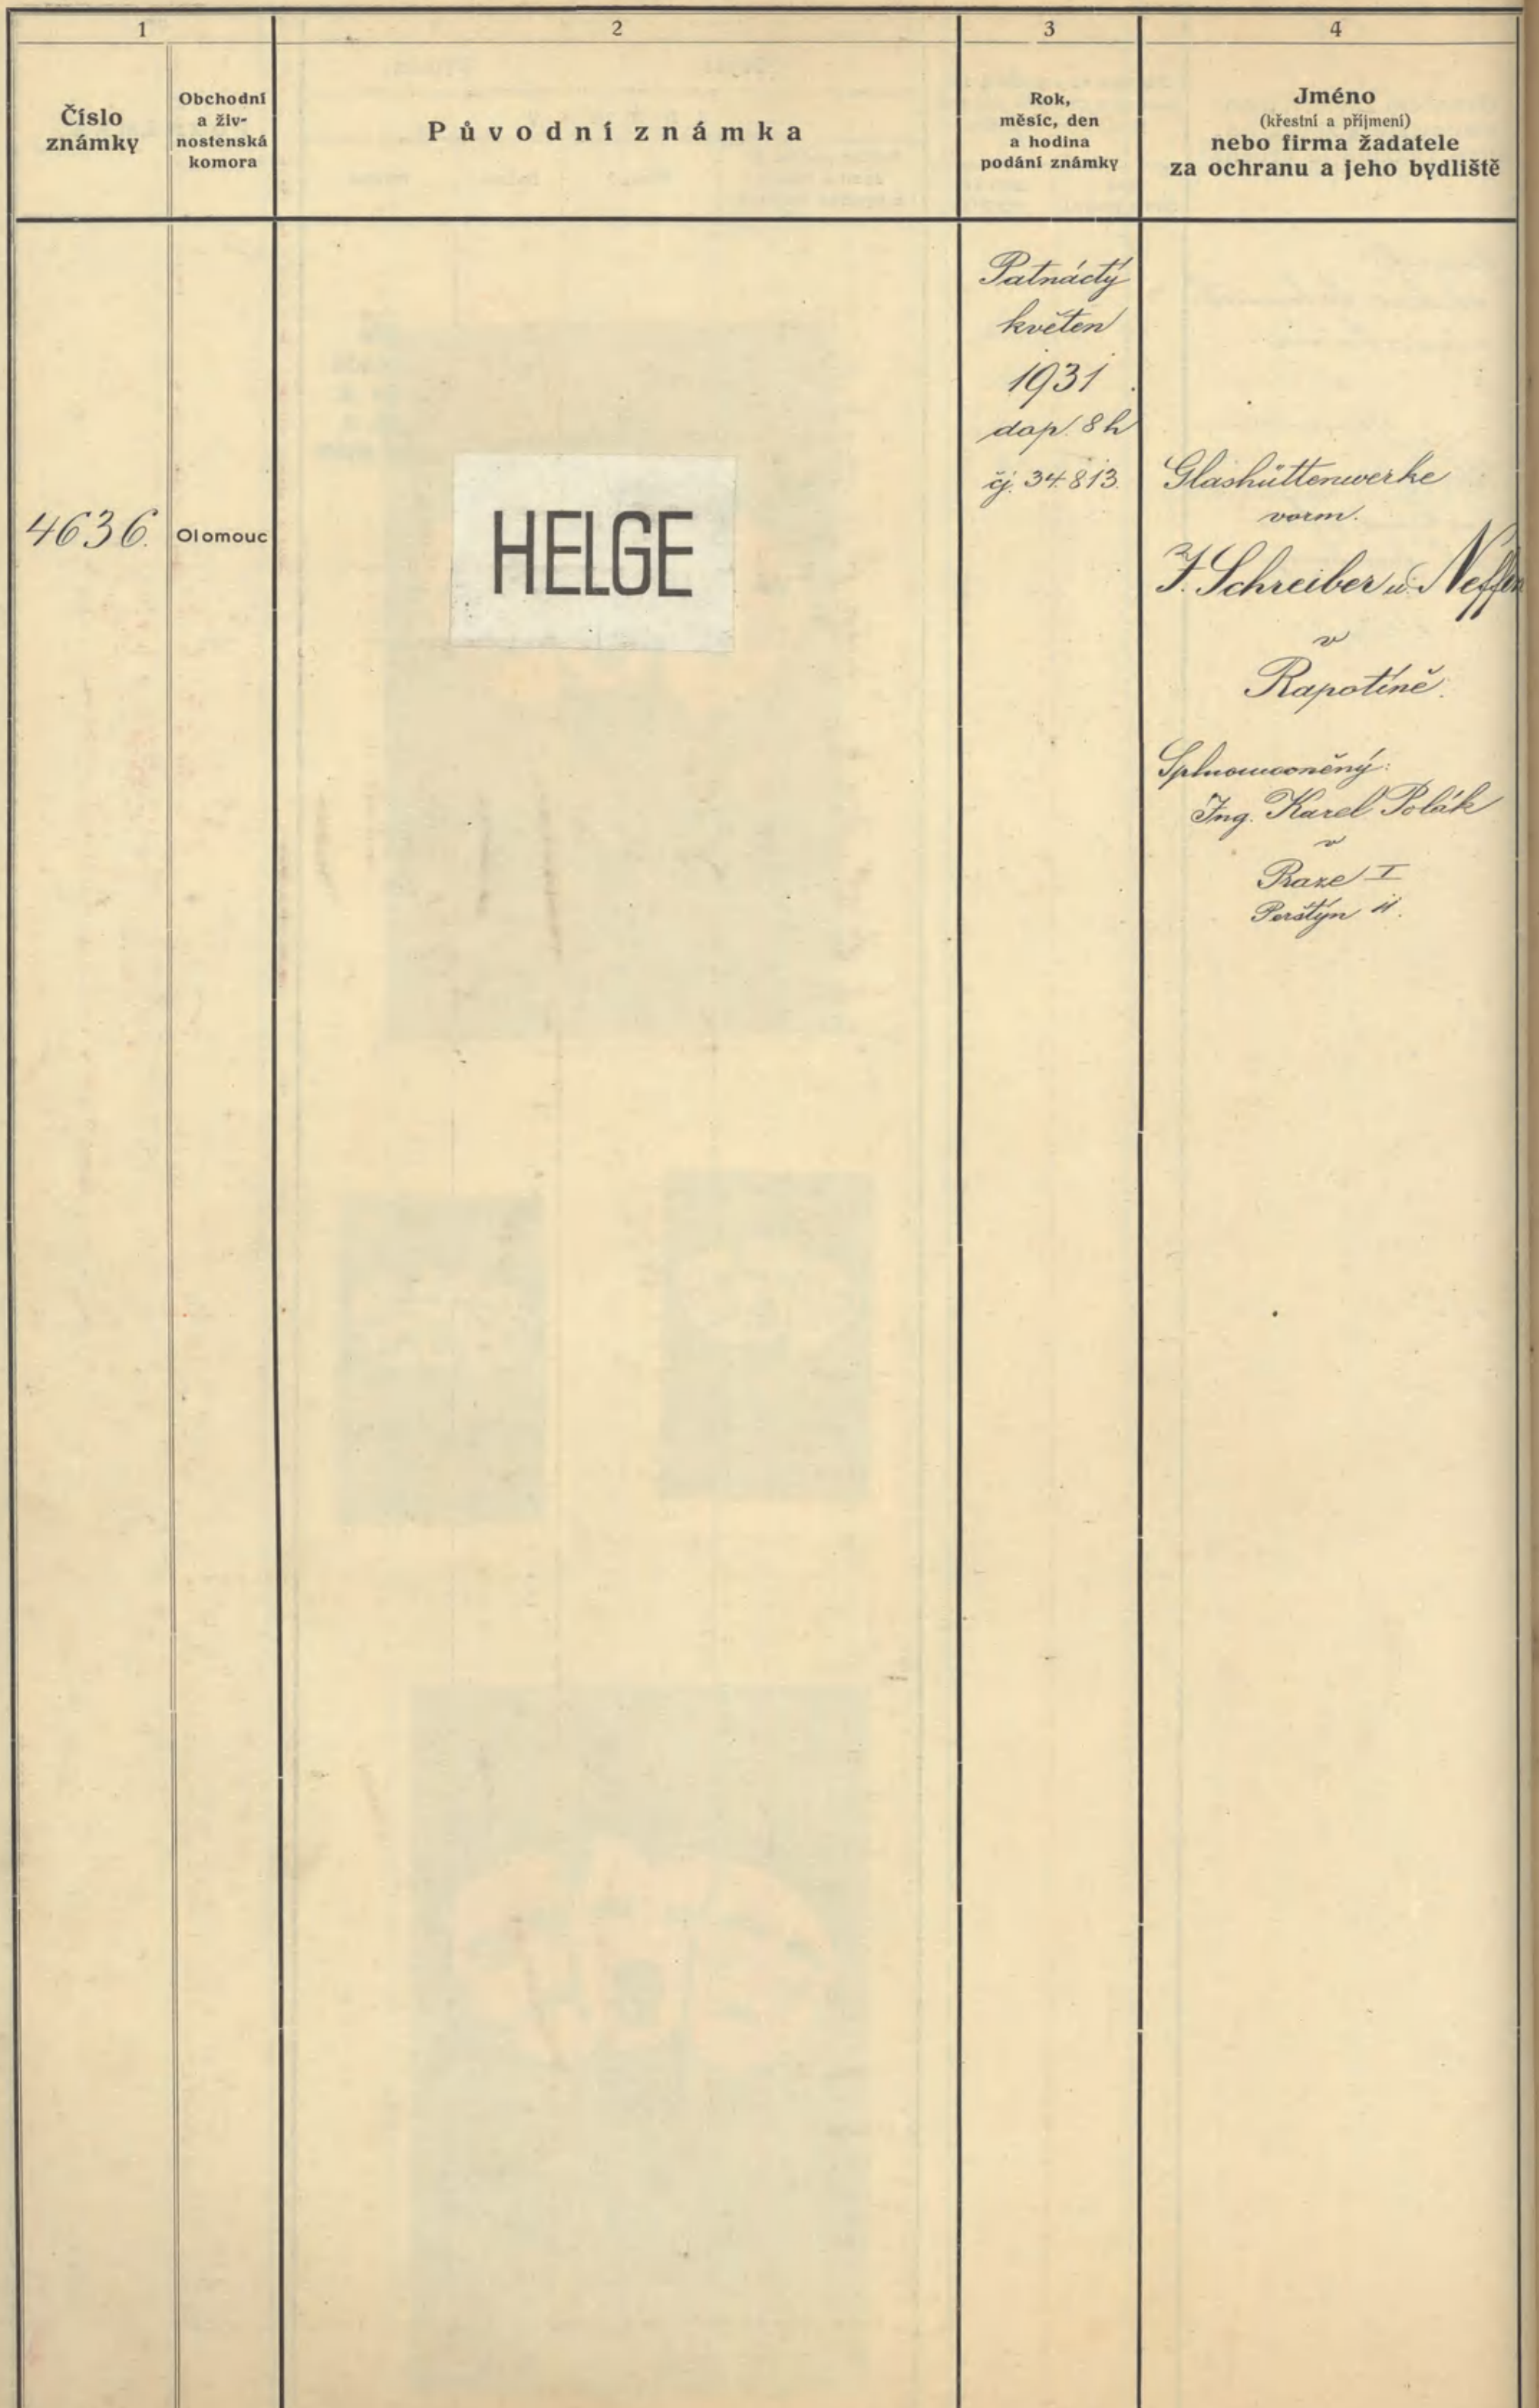 1
2
3
4
Číslo
známky
Obchodní
a živ-
nostenská
komora
Původní známka
Rok,
měsíc, den
a hodina
podání známky
Jméno
(křestní a příjmení)
nebo firma žadatele
za ochranu a jeho bydliště
4636.
Olomouc
HELGE
Patnáctý
květen
1931
dop. 8 h
čj. 34.813.
Glashüttenwerke
vorm.
J. Schreiber u. Neffen
v
Rapotíně.
Splnomocněný:
Ing. Karel Polák
v
Praze I
Perštýn 11.